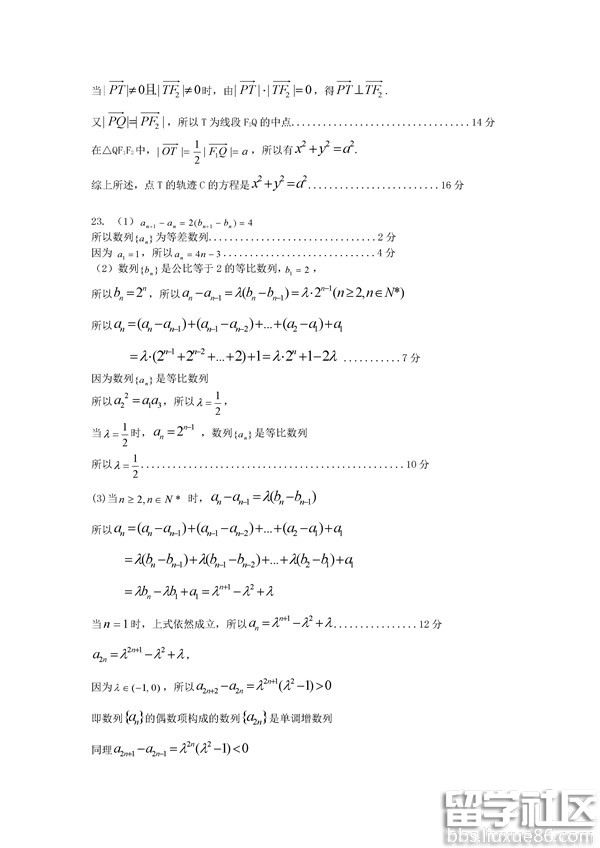 当|PT|≠0且|TF₂|≠0时，由|PT|·|TF₂|=0，得PT⊥TF₂.
又|PQ|=|PF₂|，所以T为线段F₂Q的中点..................................14分
在△QF₁F₂中，|OT|=1/2|F₁Q|=a，所以有x²+y²=a².
综上所述，点T的轨迹C的方程是x²+y²=a².........................16分
23. （1）aₙ₊₁-aₙ=2(bₙ₊₁-bₙ)=4
所以数列{aₙ}为等差数列................................2分
因为 a₁=1，所以aₙ=4n-3.............................4分
（2）数列{bₙ}是公比等于2的等比数列，b₁=2，
所以bₙ=2ⁿ，所以aₙ-aₙ₋₁=λ(bₙ-bₙ₋₁)=λ·2ⁿ⁻¹(n≥2,n∈N*)
所以aₙ=(aₙ-aₙ₋₁)+(aₙ₋₁-aₙ₋₂)+...+(a₂-a₁)+a₁
=λ·(2ⁿ⁻¹+2ⁿ⁻²+...+2)+1=λ·2ⁿ+1-2λ ...........7分
因为数列{aₙ}是等比数列
所以a₂²=a₁a₃，所以λ=1/2，
当λ=1/2时，aₙ=2ⁿ⁻¹ ，数列{aₙ}是等比数列
所以λ=1/2..................................................10分
(3)当n≥2,n∈N* 时，aₙ-aₙ₋₁=λ(bₙ-bₙ₋₁)
所以aₙ=(aₙ-aₙ₋₁)+(aₙ₋₁-aₙ₋₂)+...+(a₂-a₁)+a₁
=λ(bₙ-bₙ₋₁)+λ(bₙ₋₁-bₙ₋₂)+...+λ(b₂-b₁)+a₁
=λbₙ-λb₁+a₁=λⁿ⁺¹-λ²+λ
当n=1时，上式依然成立，所以aₙ=λⁿ⁺¹-λ²+λ................12分
a₂ₙ=λ²ⁿ⁺¹-λ²+λ，
因为λ∈(-1,0)，所以a₂ₙ₊₂-a₂ₙ=λ²ⁿ⁺¹(λ²-1)>0
即数列{aₙ}的偶数项构成的数列{a₂ₙ}是单调增数列
同理a₂ₙ₊₁-a₂ₙ₋₁=λ²ⁿ(λ²-1)<0
留学社区
bbs.liuxue86.com